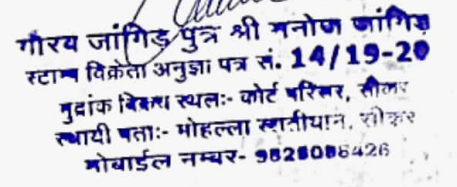 गौरव जांगिड़ पुत्र श्री मनोज जांगिड़
स्टाम्प विक्रेता अनुज्ञा पत्र सं. 14/19-20
मुद्रांक विक्रय स्थलः- कोर्ट परिसर, सीकर
स्थायी पताः- मोहल्ला सतीयान, सीकर
मोबाईल नम्बर-